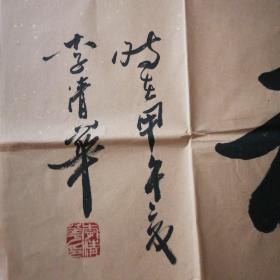 时在甲午夏
李清华